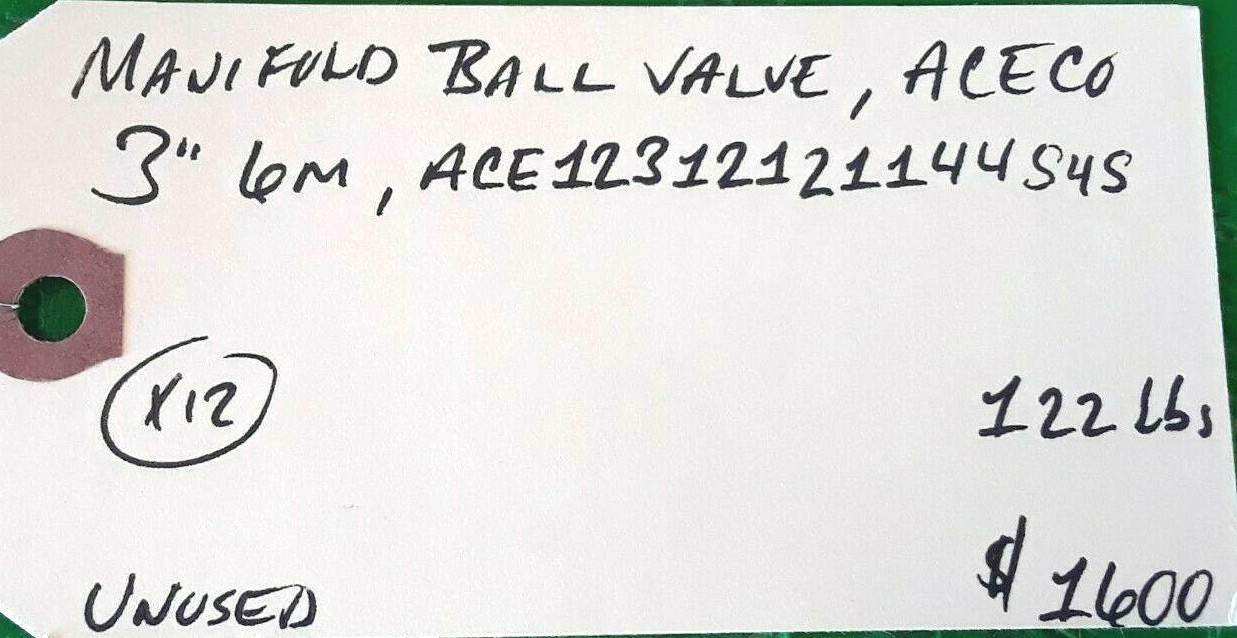 MANIFOLD BALL VALVE, ACECO
3" 6M, ACE12312121144S4S
X12
122 Lbs
UNUSED
$1600